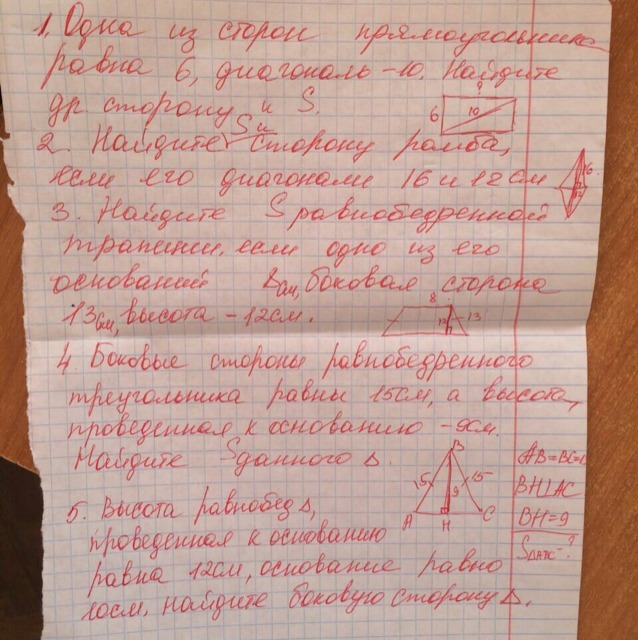 1. Одна из сторон прямоугольника
равна 6, диагональ -10. Найдите
др сторону и S.
?
6
10
2. Найдите S и сторону ромба,
если его диагонали 16 и 12 см
16
12
3. Найдите S равнобедренной
трапеции, если одно из его
оснований 8см, боковая сторона
13см, высота - 12см.
8
12
13
4. Боковые стороны равнобедренного
треугольника равны 15см, а высота,
проведенная к основанию - 9см.
Найдите S данного Δ.
B
15
9
15
A
H
C
AB=BC=
BH⊥AC
BH=9
5. Высота равнобед Δ,
проведенная к основанию
равна 12см, основание равно
10см, найдите боковую сторону Δ.